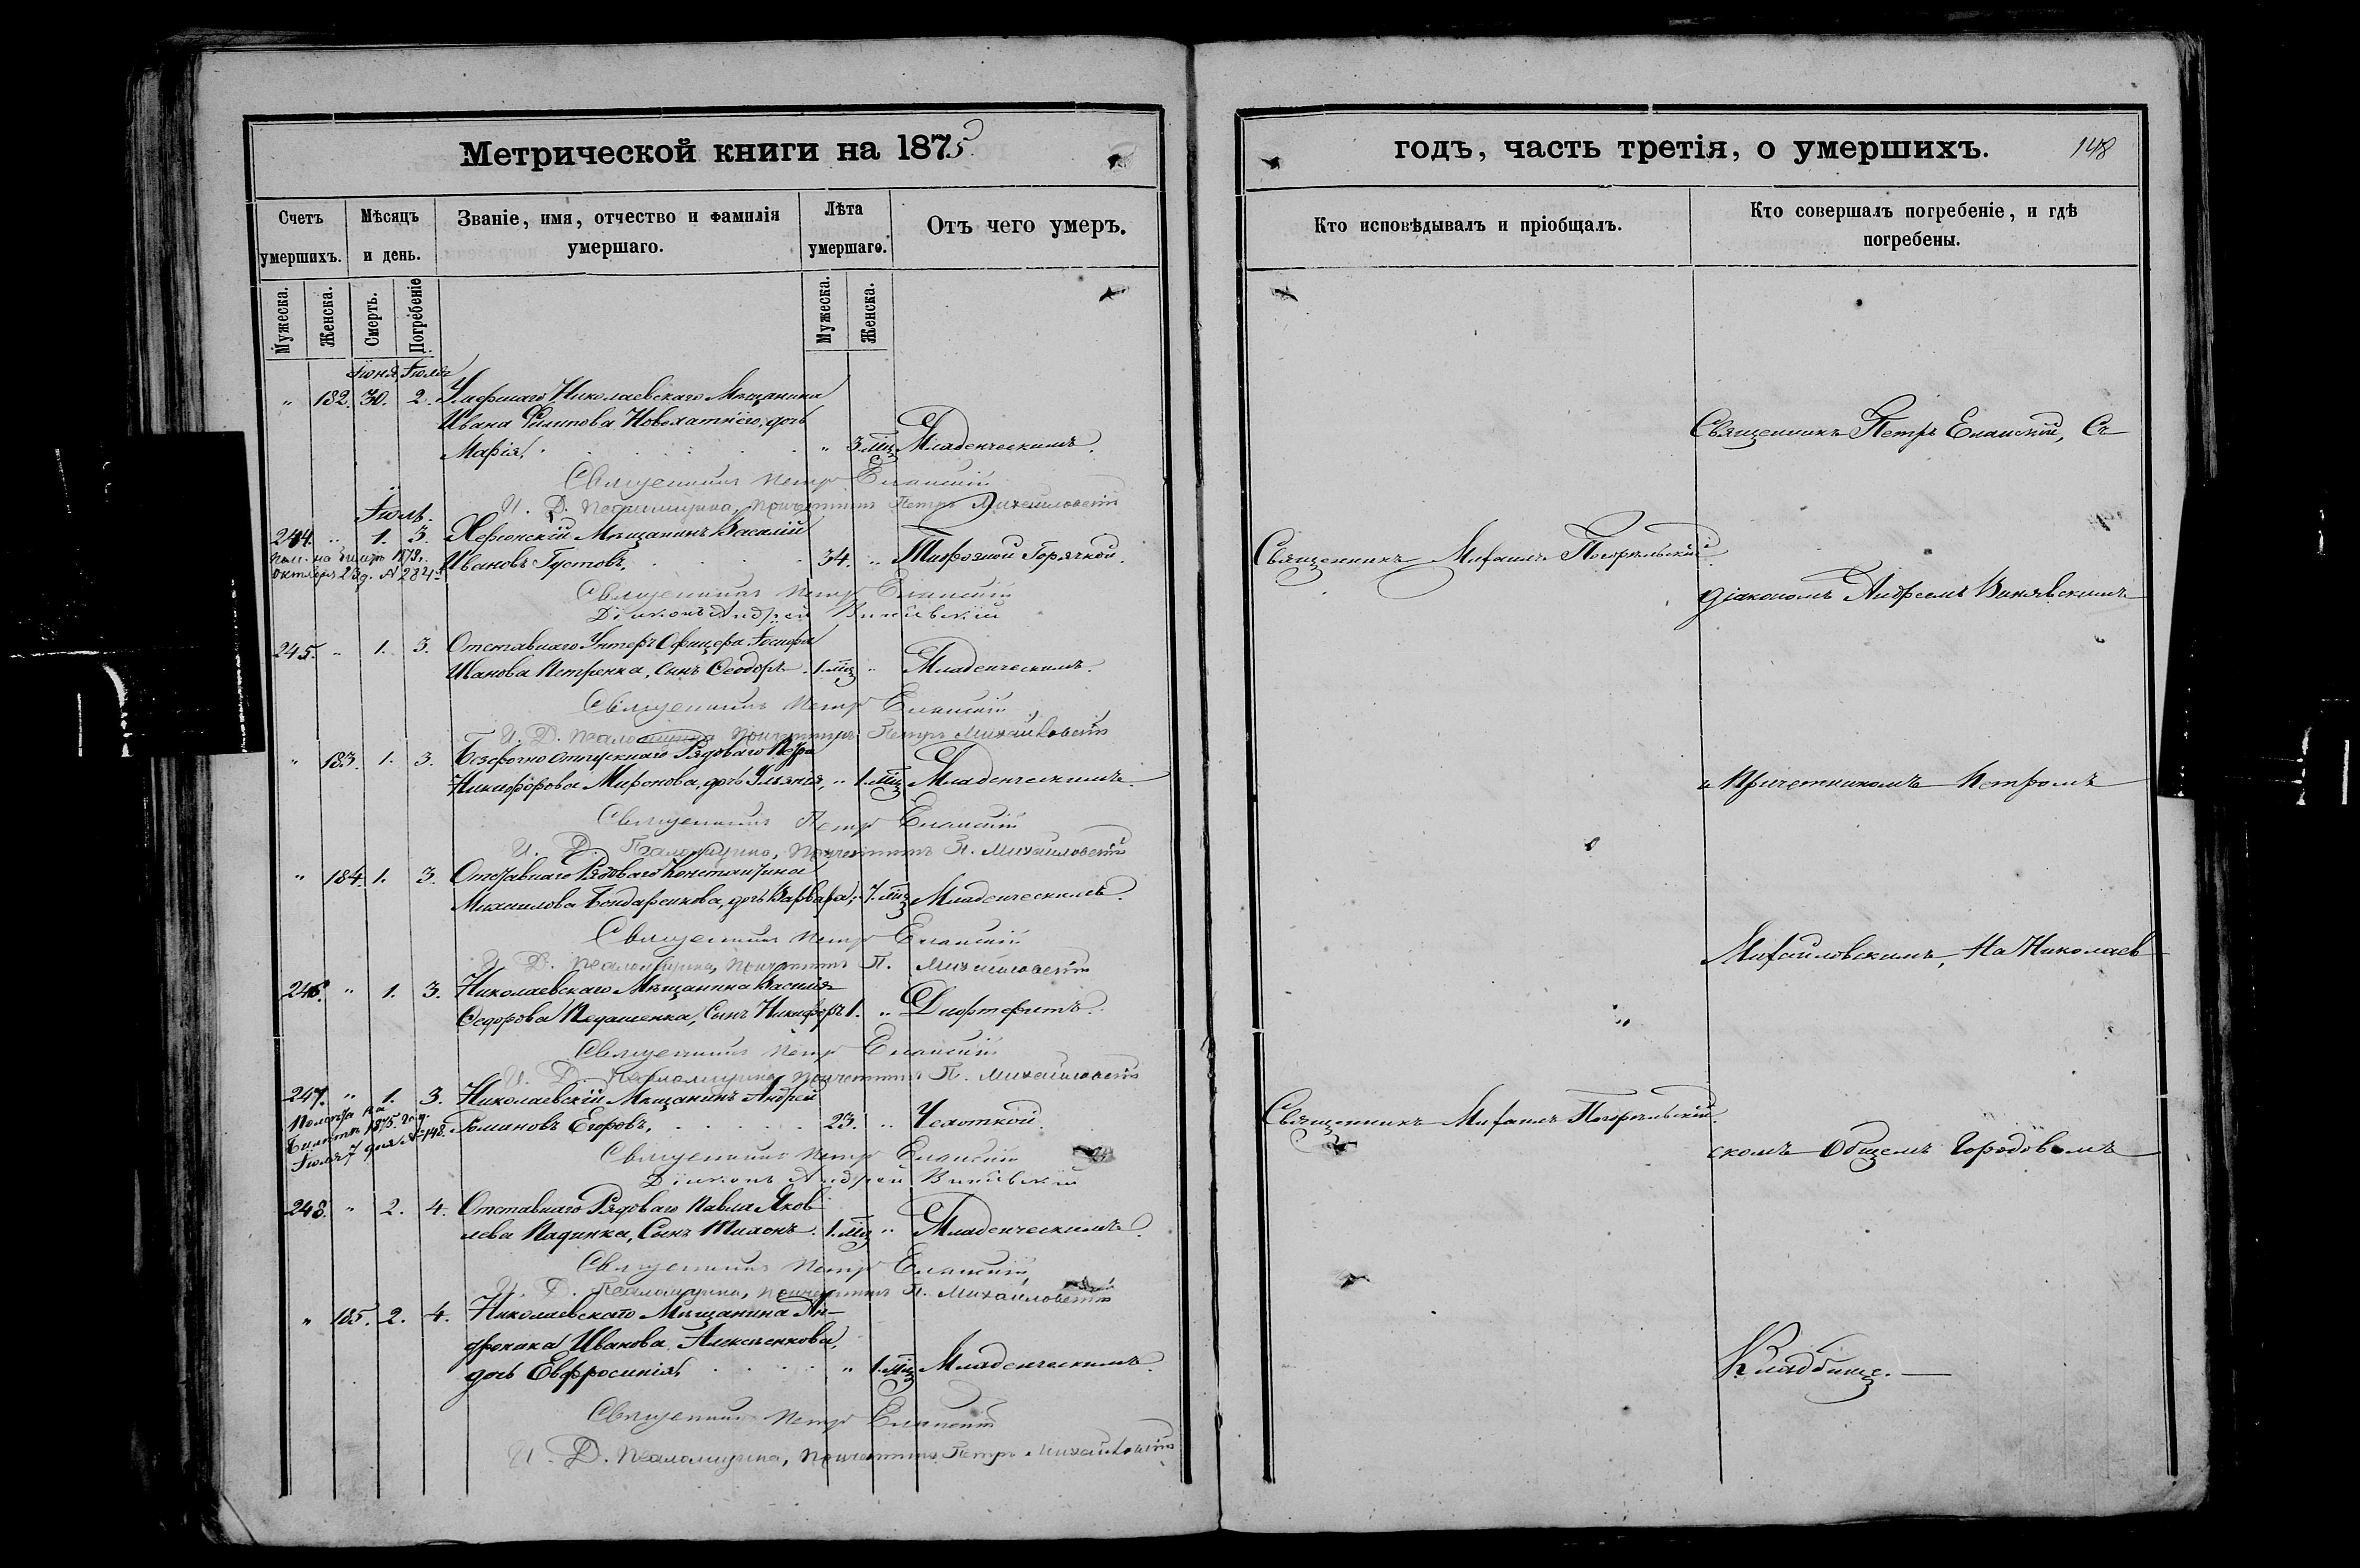 Метрической книги на 1875
годъ, часть третія, о умершихъ.
148
Счетъ умершихъ.
Мѣсяцъ и день.
Званіе, имя, отчество и фамилія умершаго.
Лѣта умершаго.
Отъ чего умеръ.
Кто исповѣдывалъ и пріобщалъ.
Кто совершалъ погребеніе, и гдѣ погребены.
Мужеска.
Женска.
Смерть.
Погребеніе
Мужеска.
Женска.
Іюня Іюля
" 182. 30. 2. Умершаго Николаевскаго Мѣщанина
Ивана Филипова дочь
Марія, " 3 мц. Младенческимъ.
Священникъ Петръ Еланскій
И. Д. Псаломщика, Причетникъ Петръ Михайловскій
Іюль.
244. " 1. 3. Херсонскій Мѣщанинъ Василій
Ивановъ Густовъ, 34. " Тифозной Горячкой.
Священникъ Петръ Еланскій
Діаконъ Андрей Винявскій
245. " 1. 3. Отставнаго Унтеръ Офицера Іосифа
Иванова Петренка, сынъ Ѳеодоръ 1. мц " Младенческимъ.
Священникъ Петръ Еланскій
И. Д. Псаломщика Причетникъ Петръ Михайловскій
" 183. 1. 3. Безсрочно отпускнаго Рядоваго Петра
Никифорова Миронова, дочь Ульянія, " 1. мц Младенческимъ.
Священникъ Петръ Еланскій
И. Д. Псаломщика, Причетникъ П. Михайловскій
" 184. 1. 3. Отставнаго Рядоваго Константина
Михаилова Бондаренкова, дочь Варвара, 7. мц Младенческимъ.
Священникъ Петръ Еланскій
И. Д. Псаломщика, Причетникъ П. Михайловскій
246. " 1. 3. Николаевскаго Мѣщанина Василія
Ѳедорова Педашенка, Сынъ Никифоръ 1. " Дифтеритъ.
Священникъ Петръ Еланскій
И. Д. Псаломщика, Причетникъ П. Михайловскій
247. " 1. 3. Николаевскій Мѣщанинъ Андрей
Романовъ Егоровъ, 23. " Чахоткой.
Священникъ Петръ Еланскій
Діаконъ Андрей Винявскій
248. " 2. 4. Отставнаго Рядоваго Павла Яков
лева Падинка, Сынъ Тихонъ 1. мц " Младенческимъ.
Священникъ Петръ Еланскій
И. Д. Псаломщика, Причетникъ П. Михайловскій
" 185. 2. 4. Николаевскаго Мѣщанина Ан-
дроника Иванова Алексѣенкова,
дочь Евфросинія, " 1. мц Младенческимъ.
Священникъ Петръ Еланскій
И. Д. Псаломщика, Причетникъ Петръ Михайловскій
Священникъ Михаилъ
Священникъ Михаилъ
Священникъ Петръ Еланскій, Съ
діакономъ Андреемъ Винявскимъ
и Причетникомъ Петромъ
Михайловскимъ, На Николаев
скомъ Общемъ Городовомъ
Кладбище.